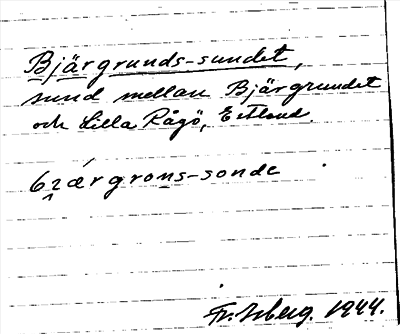 Bjärgrunds-sundet,
sund mellan Bjärgrundet
och Lilla Rågö, Estland.
bzárgrons-sonde
Fr. Isberg. 1944.